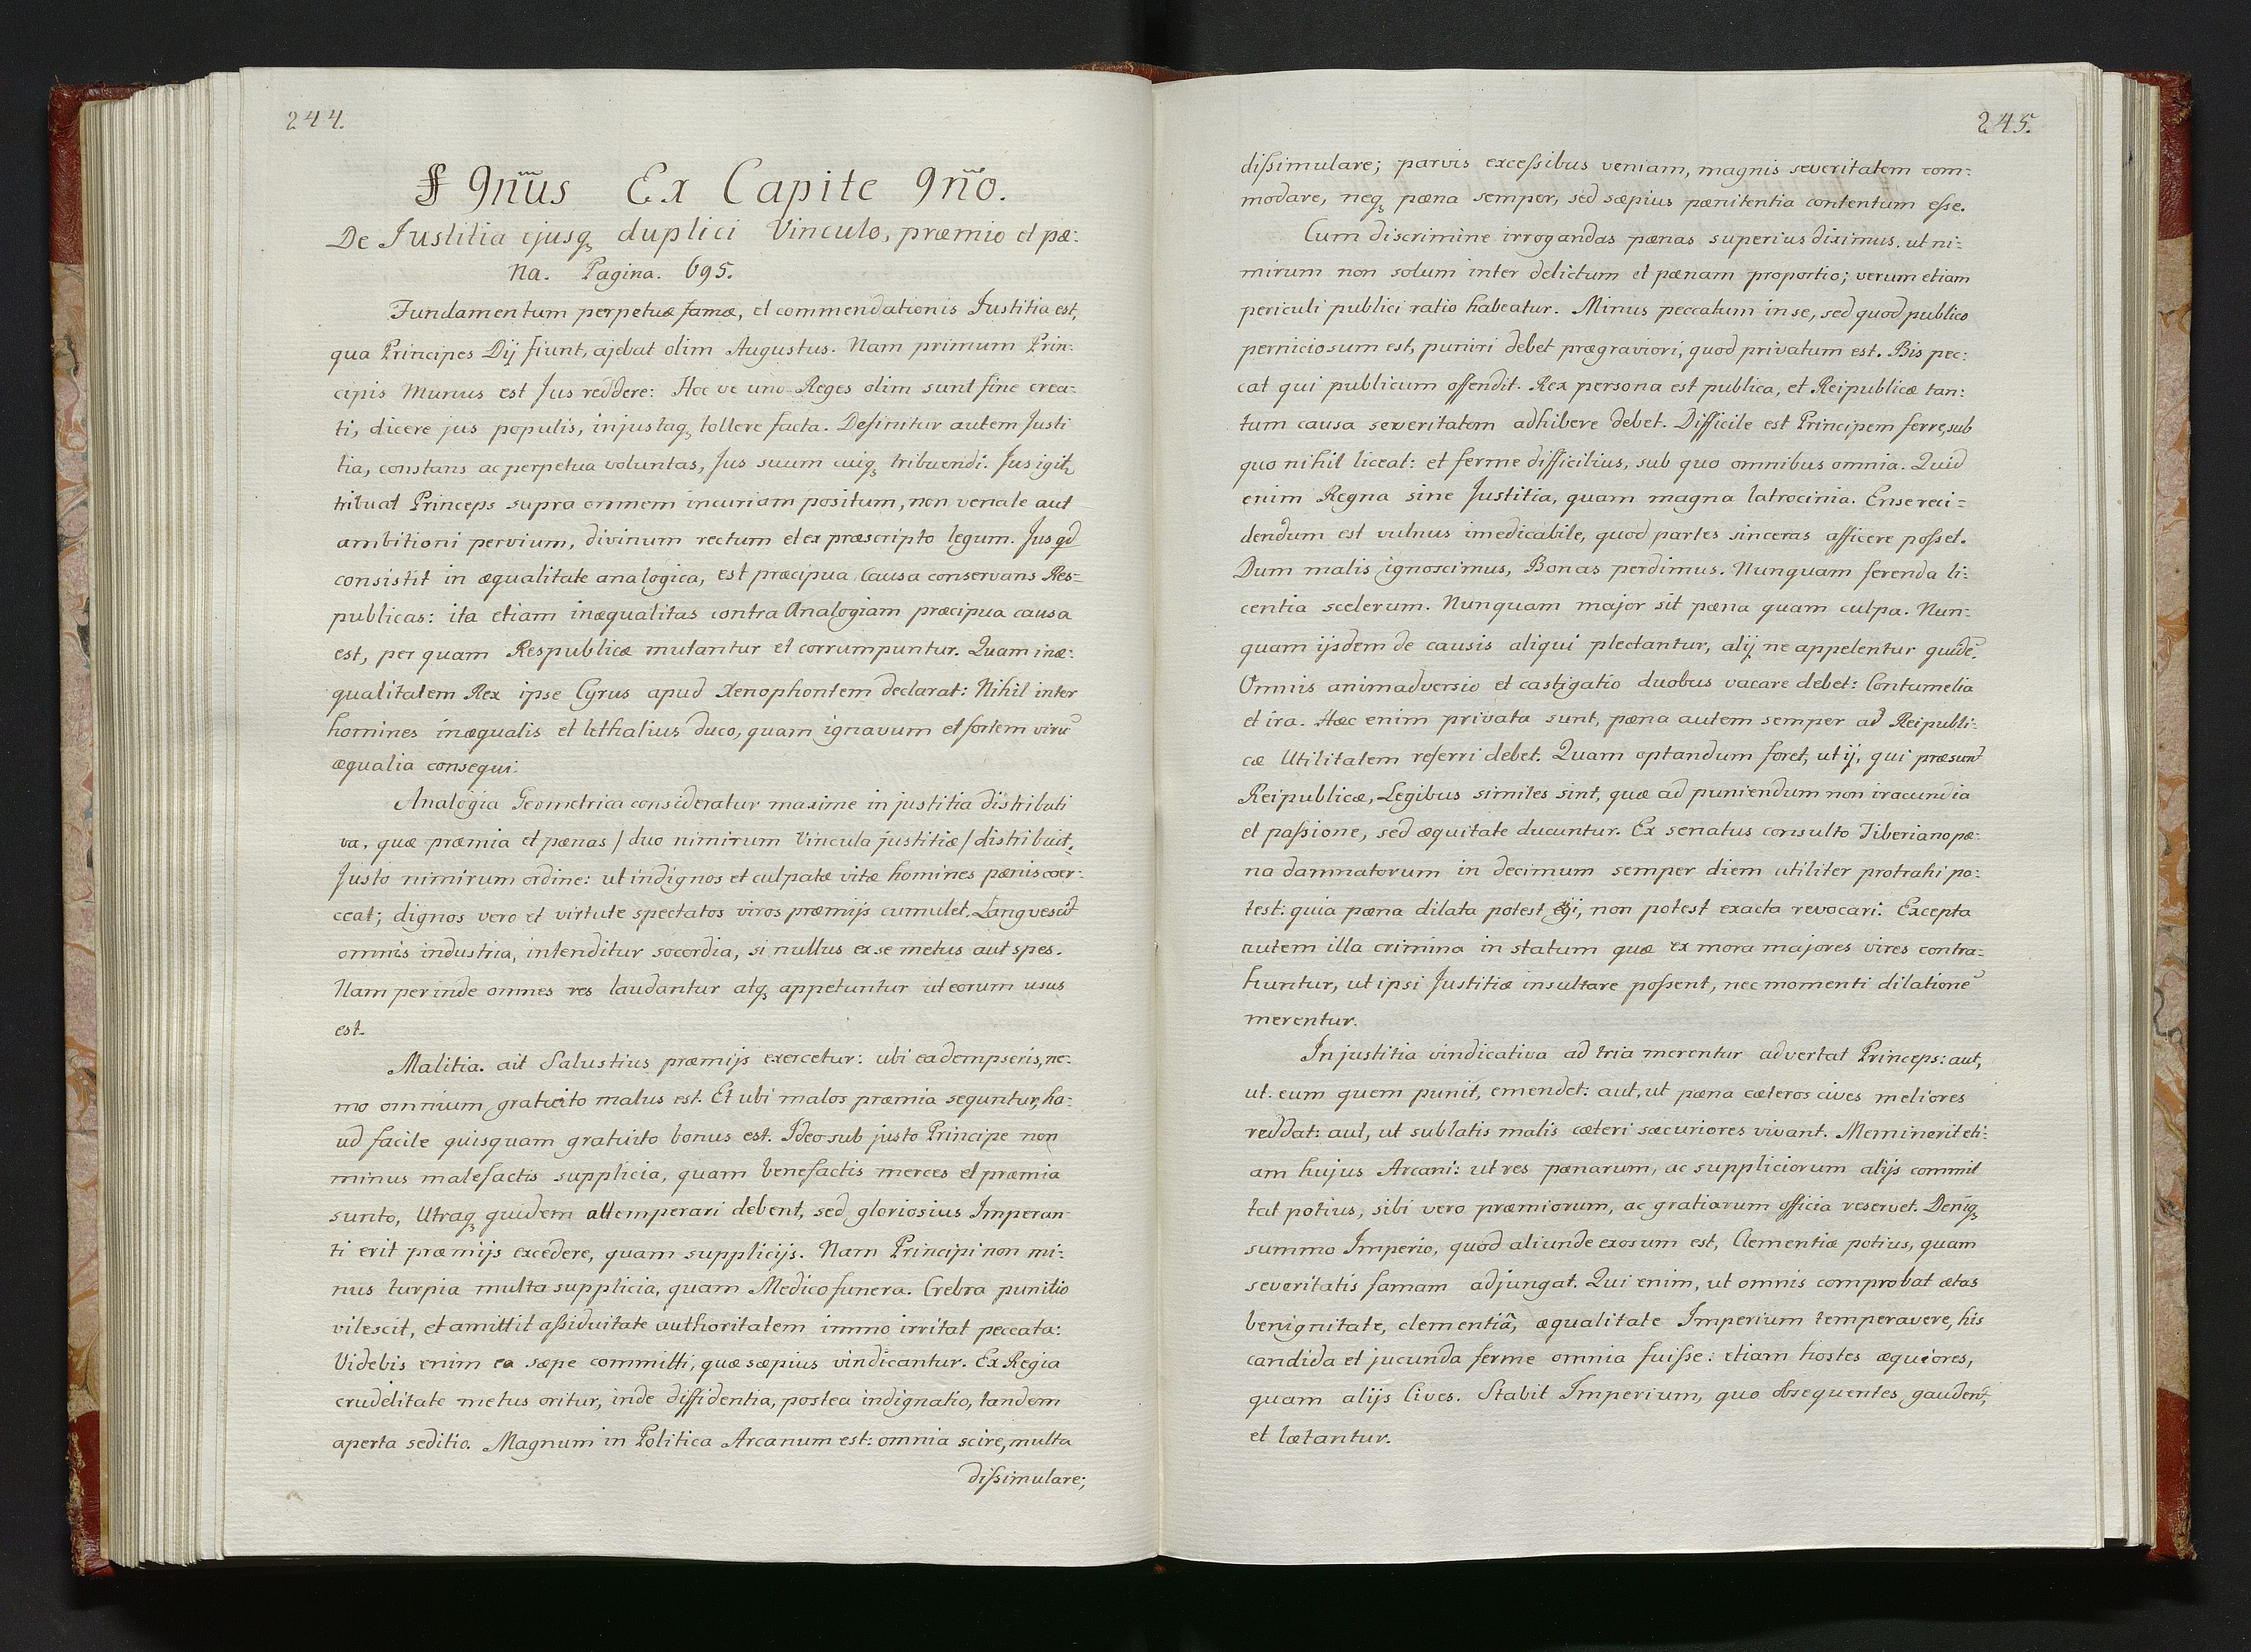 244.
§ 9nus Ex Capite 9no.
De Iustitia ejusq₃ duplici Vinculo, præmio et pæ:
na. Pagina. 695.
Fundamentum perpetuæ famæ, et commendationis Iustitia est,
qua Principes Dij fiunt, ajebat olim Augustus. Nam primum Prin:
cipis Munus est Jus reddere: Hoc ve uno Reges olim sunt fine crea:
ti, dicere jus populis, injustaq₃ tollere facta. Definitur autem Justi
tia, constans ac perpetua voluntas, Jus suum cuiq₃ tribuendi. Jus igitr
tribuat Princeps supra omnem incuriam positum, non venale aut
ambitioni pervium, divinum rectum et ex præscripto legum. Jus qd
consistit in æqualitate analogica, est præcipua Causa conservans Res=
publicas: ita etiam inæqualitas contra Analogiam præcipua causa
est, per quam Respublicæ mutantur et corrumpuntur. Quam inæ:
qualitatem Rex ipse Cyrus apud Xenophontem declarat: Nihil inter
homines inæqualis et lethalius duco, quam ignavum et fortem virū
æqualia consequi.
Analogia Geometrica consideratur maxime in justitia distributi
va, quæ præmia et pænas / duo nimirum Vincula justitiæ / distribuit,
Justo nimirum ordine: ut indignos et culpatæ vitæ homines pænis coer:
ceat; dignos vero et virtute spectatos viros præmijs cumulet. Langvescit
omnis industria, intenditur socordia, si nullus ex se metus aut spes.
Nam perinde omnes res laudantur atq₃ appetuntur ut eorum usus
est.
Malitia. ait Salustius præmijs exercetur: ubi ea dempseris, ne:
mo omnium gratuito malus est. Et ubi malos præmia seguntur, ha:
ud facile quisquam gratuito bonus est. Ideo sub justo Principe non
minus malefactis supplicia, quam benefactis merces et præmia
sunto, Utraq₃ quidem attemperari debent, sed gloriosius Imperan
ti erit præmijs excedere, quam supplicijs. Nam Principi non mi:
nus turpia multa supplicia, quam Medico funera. Crebra punitio
vilescit, et amittit assiduitate authoritatem immo irritat peccata:
Videbis enim ea sæpe committi, quæ sæpius vindicantur. Ex Regia
crudelitate metus oritur, inde diffidentia, postea indignatio, tandem
aperta seditio. Magnum in Politica Arcanum est: omnia scire, multa
dissimulare;
245.
dissimulare; parvis excessibus veniam, magnis severitatem com:
modare, neq₃ pæna semper, sed sæpius pænitentia contentum esse.
Cum discrimine irrogandas pænas superius diximus. ut ni:
mirum non solum inter delictum et pænam proportio; verum etiam
periculi publici ratio habeatur. Minus peccatum in se, sed quod publico
perniciosum est, puniri debet prægraviori, quod privatum est. Bis pec:
cat qui publicum offendit. Rex persona est publica, et Reipublicæ tan:
tum causa severitatem adhibere debet. Difficile est Principem ferre, sub
quo nihil liceat: et ferme difficilius, sub quo omnibus omnia. Quid
enim Regna sine Justitia, quam magna latrocinia. Ense reci=
dendum est vulnus imedicabile, quod partes sinceras afficere posset.
Dum malis ignoscimus, Bonas perdimus. Nunquam ferenda li:
centia scelerum. Nunquam major sit pæna quam culpa. Nun:
quam ijsdem de causis aliqui plectantur, alij ne appelentur quidē.
Omnis animadversio et castigatio duobus vacare debet: Contumelia
et ira. Hæc enim privata sunt, pæna autem semper ad Reipubli:
cæ Utilitatem referri debet. Quam optandum foret, ut ij, qui præsunt
Reipublicæ, Legibus similes sint, quæ ad puniendum non iracundia
et passione, sed æquitate ducuntur. Ex senatus consulto Tiberiano pæ:
na damnatorum in decimum semper diem utiliter protrahi po:
test: quia pæna dilata potest, non potest exacta revocari. Excepta
autem illa crimina in statum quæ ex mora majores vires contra:
huntur, ut ipsi Justitiæ insultare possent, nec momenti dilationē
merentur.
In justitia vindicativa ad tria merentur advertat Princeps: aut,
ut eum quem punit, emendet: aut, ut pæna cæteros cives meliores
reddat: aut, ut sublatis malis cæteri sæcuriores vivant. Meminerit eti:
am hujus Arcani: ut res pænarum, ac suppliciorum alijs commit
tat potius, sibi vero præmiorum, ac gratiarum officia reservet. Deniq₃
summo Imperio, quod aliunde exosum est, Clementiæ potius, quam
severitatis famam adjungat. Qui enim, ut omnis comprobat ætas
benignitate, clementiâ, æqualitate Imperium temperavere, his
candida et jucunda ferme omnia fuisse: etiam hostes æquiores,
quam alijs Cives. Stabit Imperium, quo obsequentes gaudent,
et lætantur.